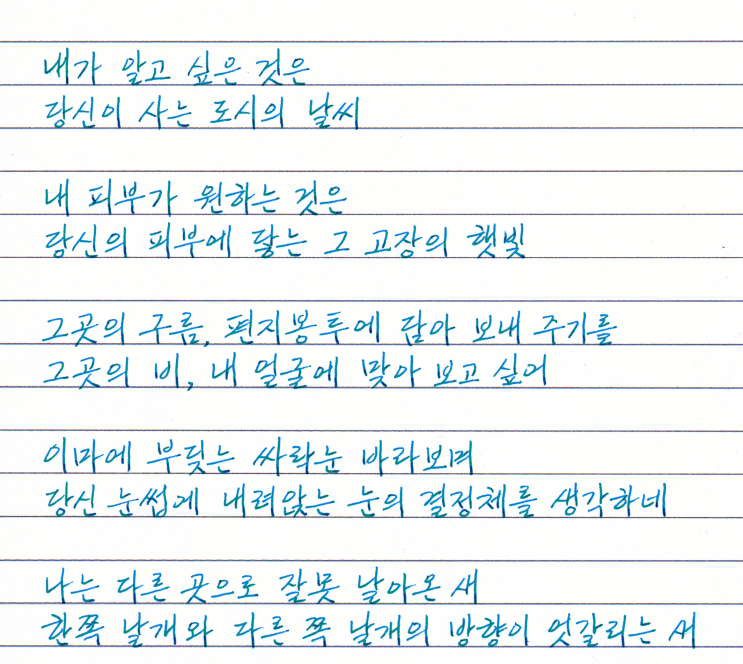 내가 알고 싶은 것은
당신이 사는 도시의 날씨
내 피부가 원하는 것은
당신의 피부에 닿는 그 고장의 햇빛
그곳의 구름, 편지봉투에 담아 보내 주기를
그곳의 비, 내 얼굴에 맞아 보고 싶어
이마에 부딪는 싸락눈 바라보며
당신 눈썹에 내려앉는 눈의 결정체를 생각하네
나는 다른 곳으로 잘못 날아온 새
한쪽 날개와 다른 쪽 날개의 방향이 엇갈리는 새